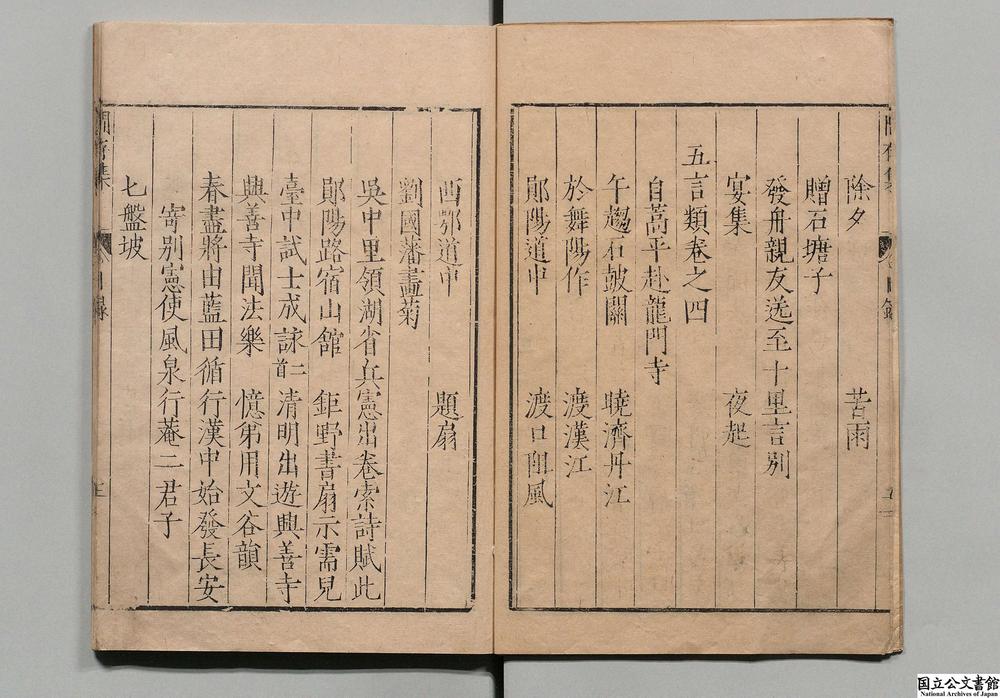 除夕　苦雨
贈石塘子
發舟親友送至十里言別
宴集　夜起
五言類卷之四
自蒿平赴龍門寺
午趨石皷關　曉濟丹江
於舞陽作　渡漢江
鄖陽道中　渡口阻風
西鄂道中　題扇
劉國藩畫菊
吳中里領湖省兵憲出卷索詩賦此
鄖陽路宿山館　鉅野書扇示需兒
臺中試士成詠二首　清明出遊興善寺
興善寺聞法樂　憶第用文谷韻
春盡將由藍田循行漢中始發長安
寄別憲使風泉行菴二君子
七盤坡
存集
目錄
国立公文書館
National Archives of Japan